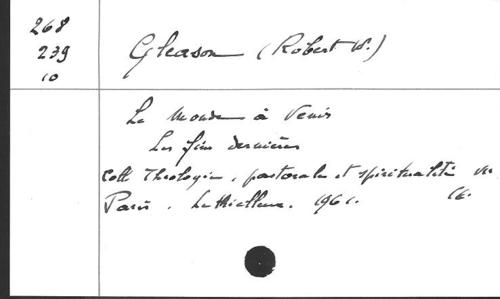 268
239
10
Gleason (Robert W.)
Le monde à venir
Les fins dernières
Coll. Théologie, pastorale et spiritualité
Paris. Lethielleux. 1961.